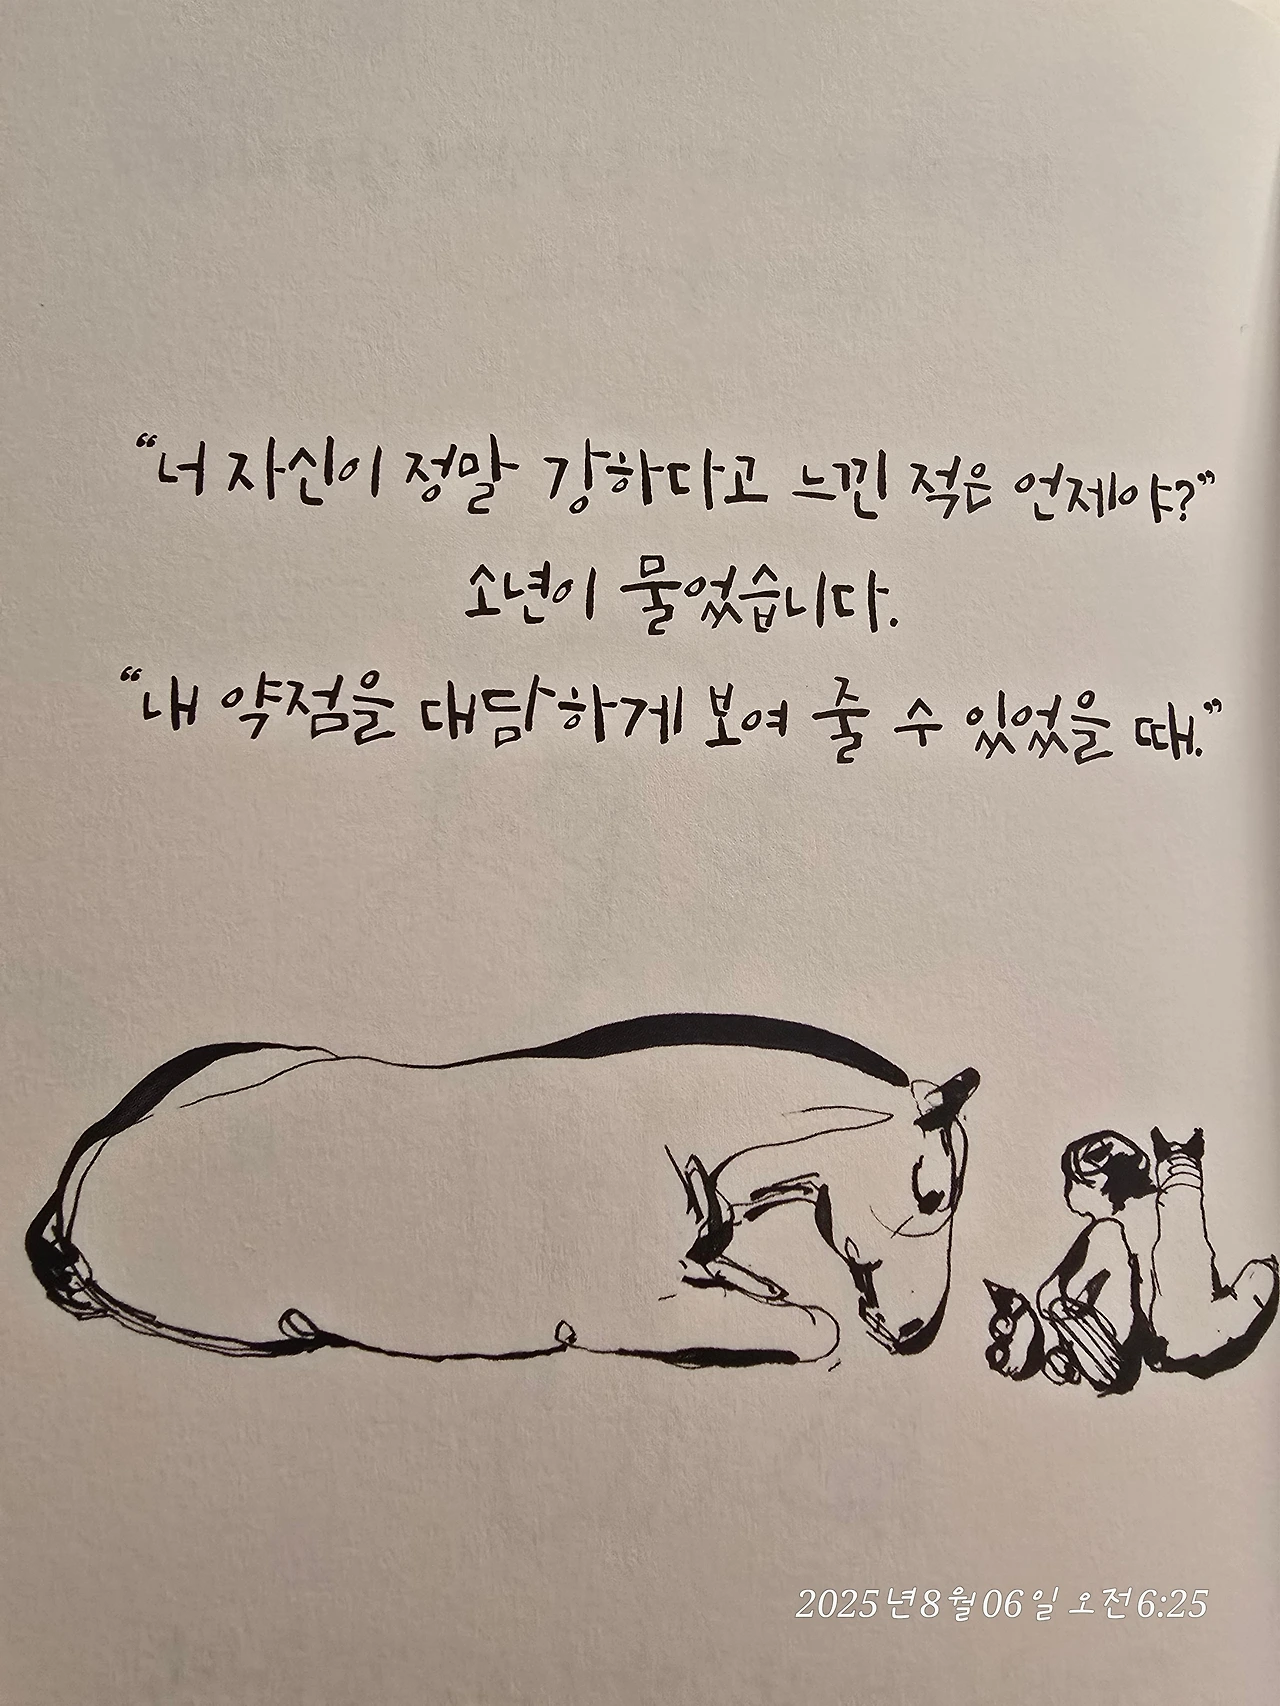 “너 자신이 정말 강하다고 느낀 적은 언제야?”
소년이 물었습니다.
“내 약점을 대담하게 보여 줄 수 있었을 때.”
2025년8월06일 오전6:25